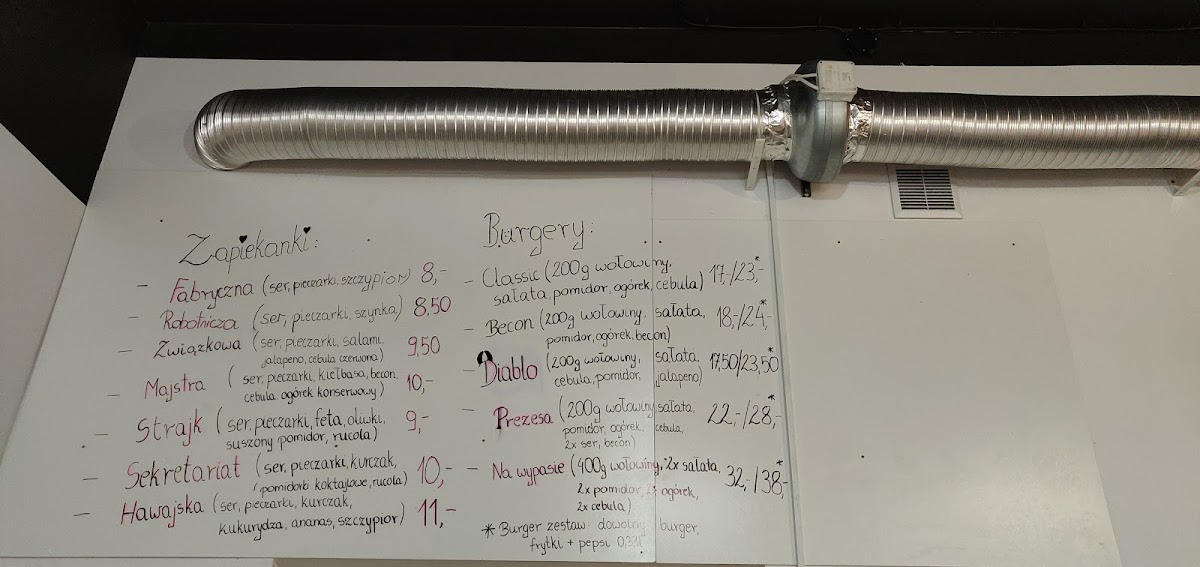 Zapiekanki:
- Fabryczna (ser, pieczarki, szczypior) 8,-
- Robotnicza (ser, pieczarki, szynka) 8,50
- Związkowa (ser, pieczarki, salami, 9,50
jalapeno, cebula czerwona)
- Majstra (ser, pieczarki, kiełbasa, becon, 10,-
cebula, ogórek konserwowy)
- Strajk (ser, pieczarki, feta, oliwki, 9,-
suszony pomidor, rucola)
- Sekretariat (ser, pieczarki, kurczak, 10,-
pomidorki koktajlowe, rucola)
- Hawajska (ser, pieczarki, kurczak, 11,-
kukurydza, ananas, szczypior)
Burgery:
- Classic (200g wołowiny, 17,-/23,-*
sałata, pomidor, ogórek, cebula)
- Becon (200g wołowiny, sałata, 18,-/24,-*
pomidor, ogórek, becon)
- Diablo (200g wołowiny, sałata, 17,50/23,50*
cebula, pomidor, jalapeno)
- Prezesa (200g wołowiny, sałata, 22,-/28,-*
pomidor, ogórek, cebula,
2x ser, becon)
- Na wypasie (400g wołowiny, 2x sałata, 32,-/38,-*
2x pomidor, ogórek,
2x cebula)
* Burger zestaw: dowolny burger,
frytki + pepsi 0,33l